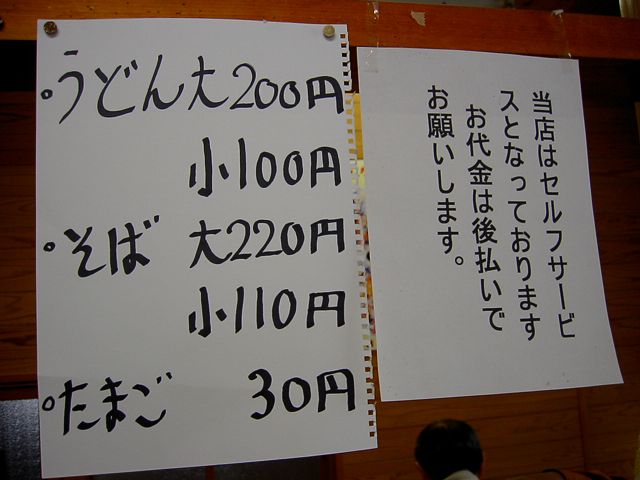 。うどん大200円
小100円
。そば 大220円
小110円
。たまご 30円
当店はセルフサービ
スとなっております
お代金は後払いで
お願いします。